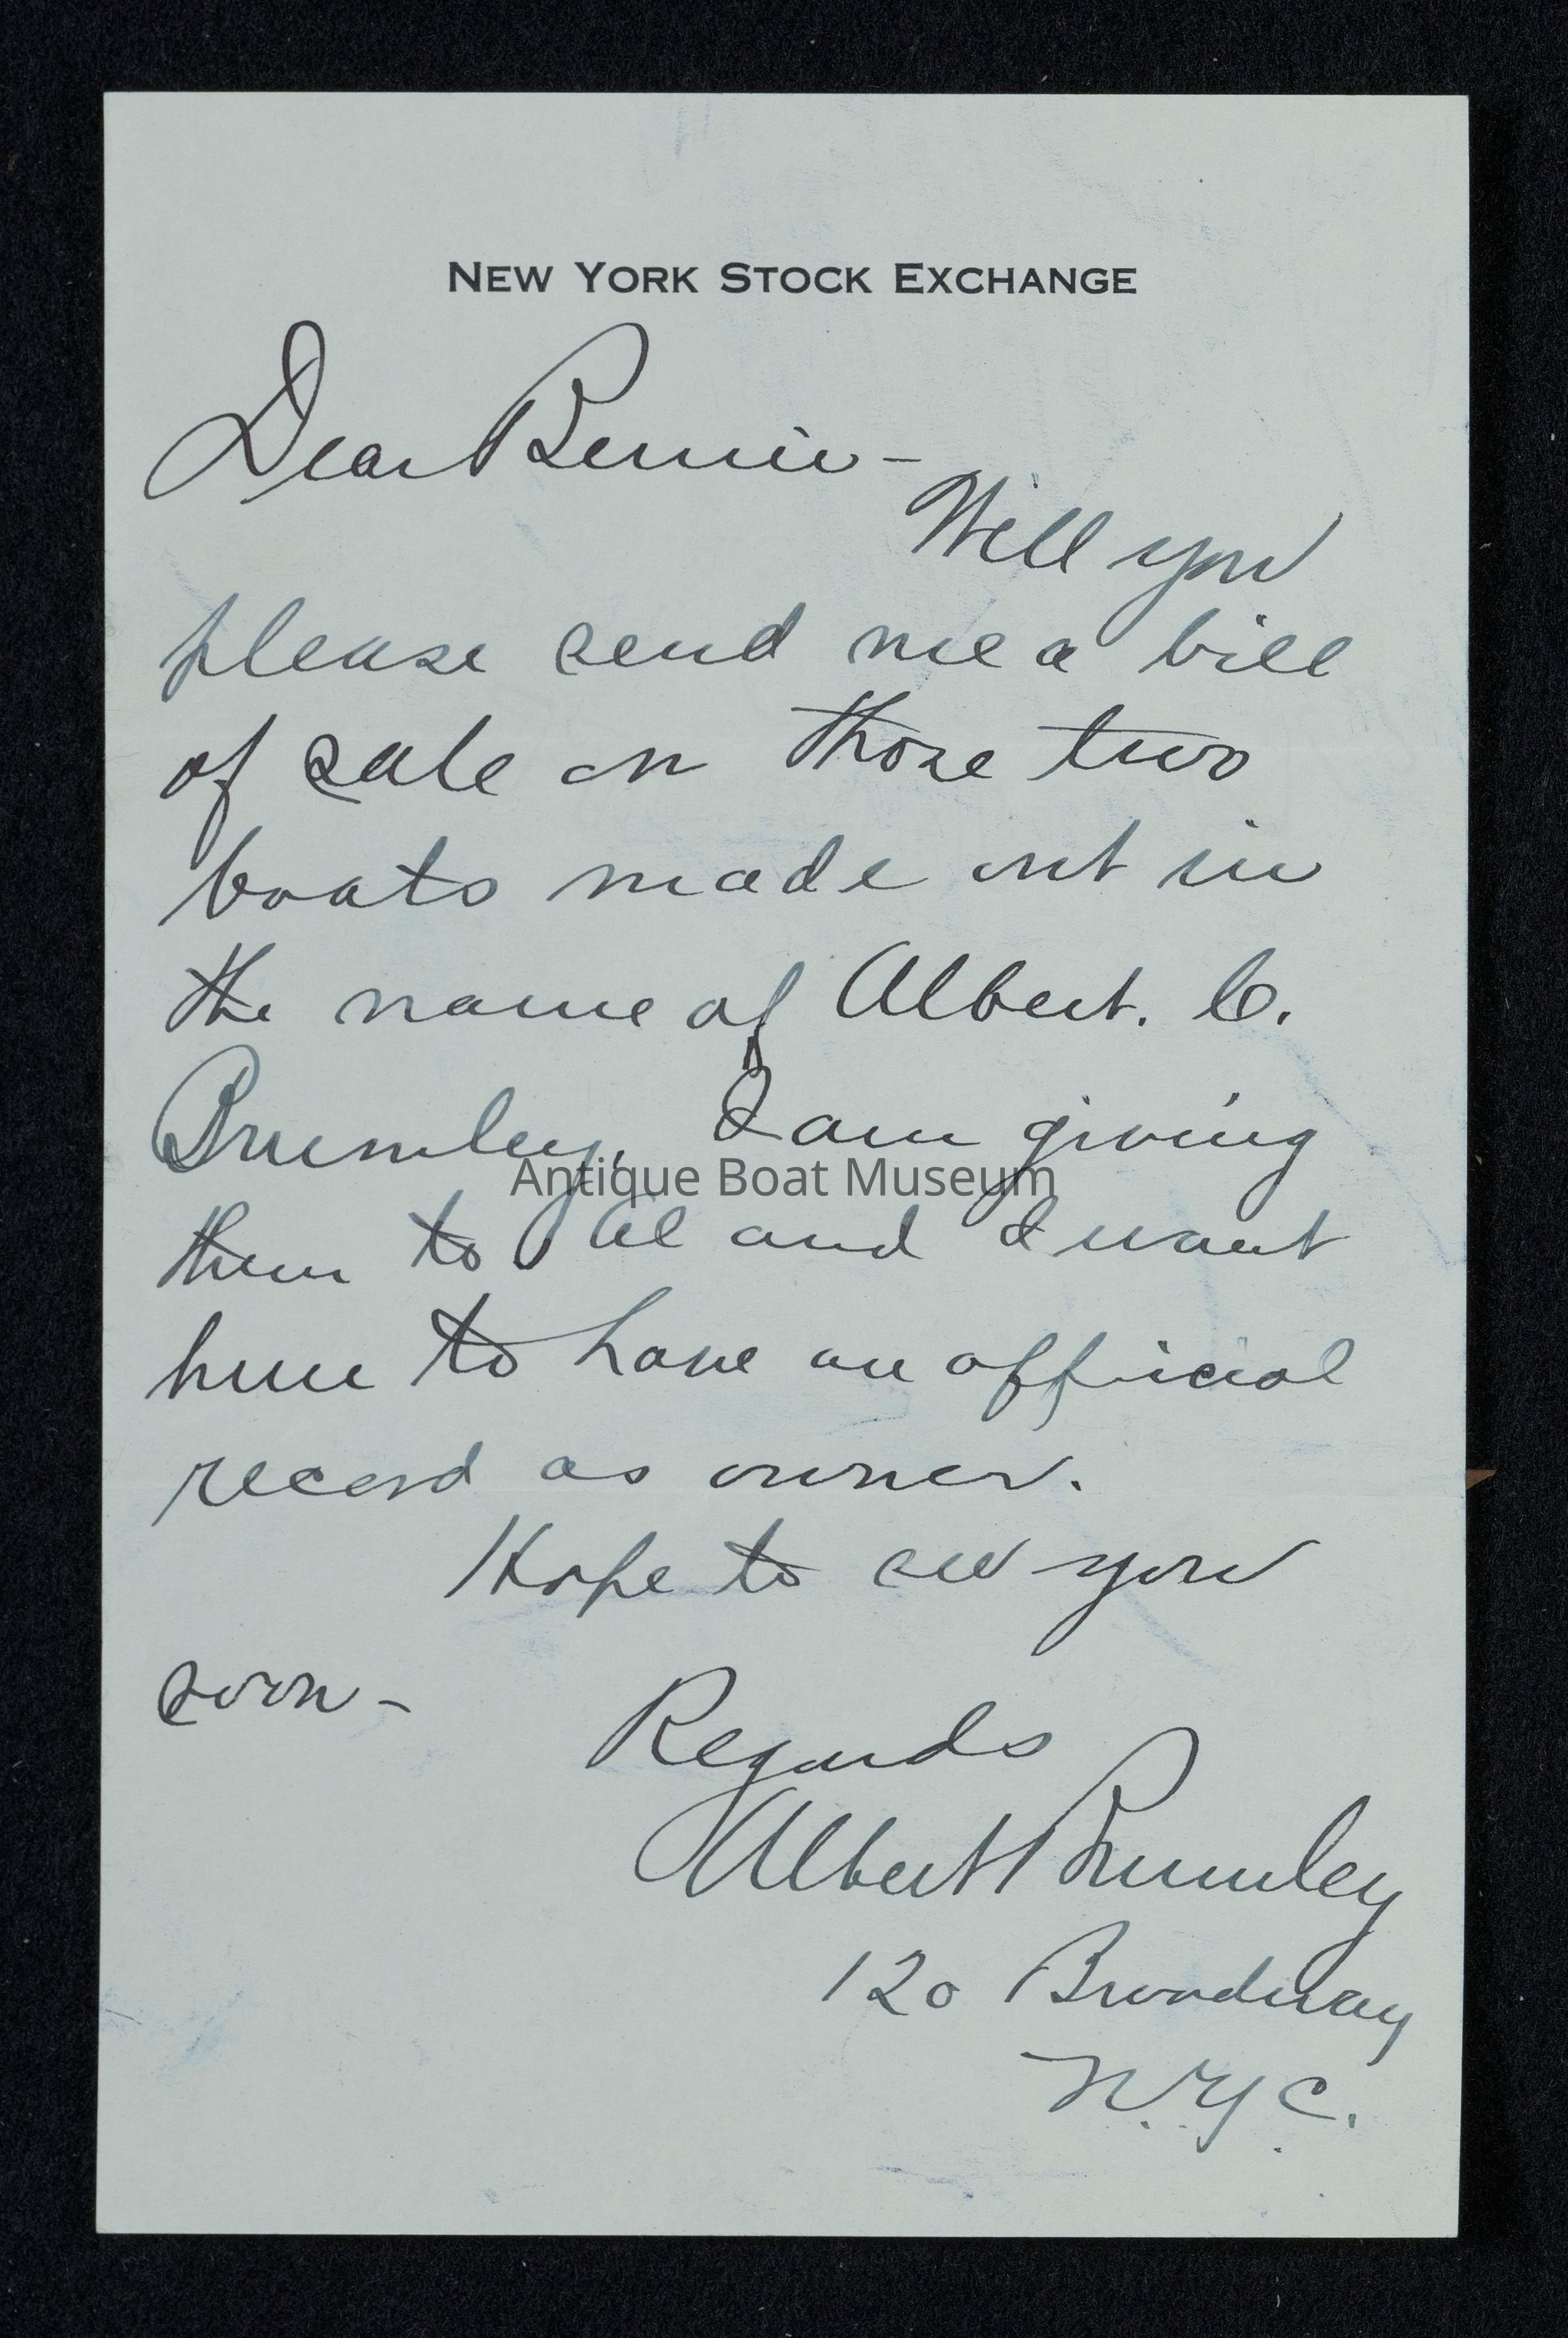 NEW YORK STOCK EXCHANGE
Dear Bernie -
Will you
please send me a bill
of sale on those two
boats made out in
the name of Albert. C.
Brumley. I am giving
Antique Boat Museum
them to Al and I want
him to have an official
record as owner.
Hope to see you
soon -
Regards
Albert Brumley
120 Broadway
N.Y.C.